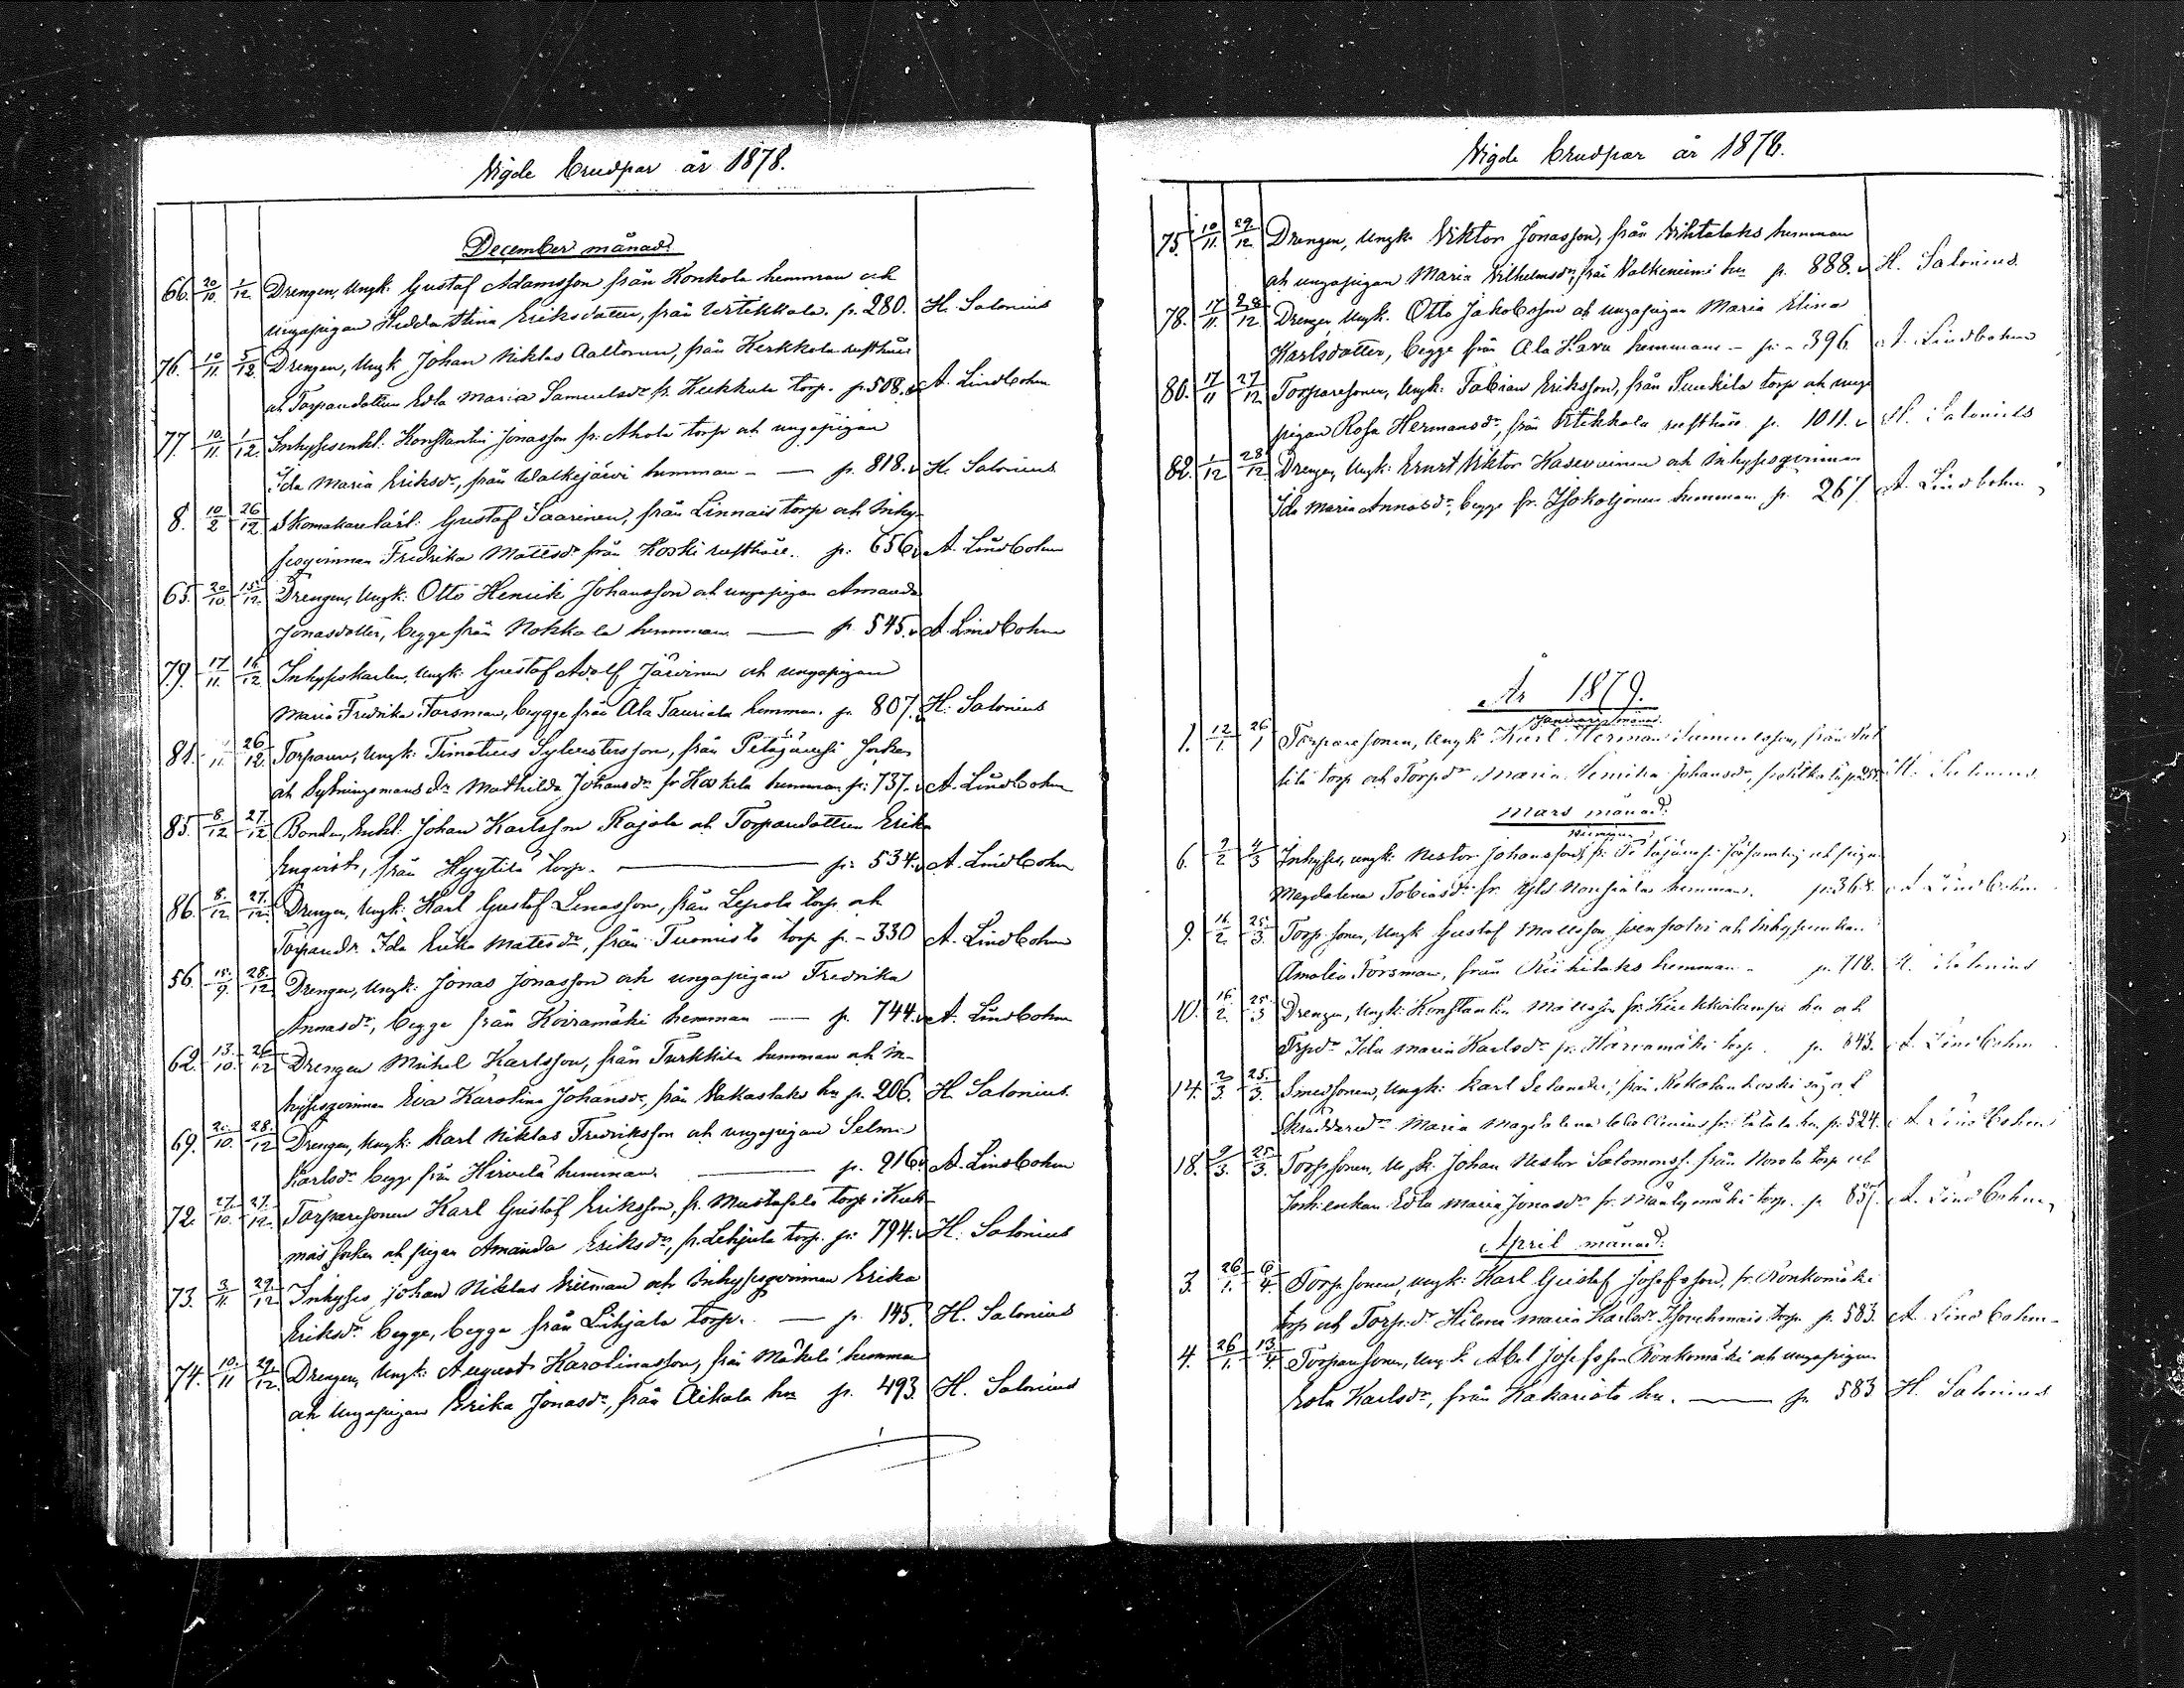 Vigde Brudpar år 1878.
December månad:
66. 20/10. 1/12. Drengen, Ungk: Gustaf Adamsson från Konkola hemman och
ungapigan Hedda Stina Eriksdotter, från Wrtekkala. p. 280. H. Salonius
76. 10/11. 5/12. Drengen, Ungk Johan Niklas Aaltonen, från Kerkkola rusthåll
ach Torparedottren Edla Maria Samuelsdr fr. Kukkula torp. p. 508. v A. Lindbohm
77. 10/11. 1/12. Inhysesenkl: Konstantin Jonasson fr: Ahola torp ach ungapigan
Ida Maria Eriksdr, från Walkejärvi hemman - — p. 818. v H. Salonius
8. 10/2 26/12 Skomakarelärl: Gustaf Saarinen, från Linnais torp och Inhy-
sesqvinnan Fredrika Mattsdr från Koski rusthåll. p: 656 v A. Lindbohm
65. 20/10. 15/12. Drengen, Ungk: Otto Henrik Johansson ach ungapigan Amanda
Jonasdotter, begge från Nokkala hemman — p. 545. v A. Lindbohm
79. 17/11. 16/12. Inhyseskarlen, Ungk: Gustaf Adolf Järvinen och ungapigan
Maria Fredrika Forsman, begge från Ala Tauriala hemman. p. 807. v H. Salonius
81. 26/12. Torparen, Ungk: Timoteus Sylvestersson, från Petäjävesi Socken
ach Sytningsmansdr Mathilda Johansdr fr Koskela hemman p: 737. v A. Lindbohm
85. 8/12 27/12 Bonden, Enkl: Johan Karlsson Rajala ach Torparedottren Erika
Engvist, från Hyytilä torp. — p: 534. v A. Lindbohm
86. 8/12 27/12. Drengen, Ungk: Karl Gustaf Lenasson, från Lepola torp ach
Torparedr Ida Erika Mattsdr, från Tuomisto torp p. - 330 A. Lindbohm
56 15/9. 28/12 Drengen, Ungk: Jonas Jonasson ach ungapigan Fredrika
Annasdr, begge från Koiramäki hemman — p. 744. v A. Lindbohm
62. 13/10. 26/12 Drengen Mikel Karlsson, från Turkkila hemman ach In-
hysesqvinnan Eva Karolina Johansdr, från Wakaslaks hn p. 206. H. Salonius.
69. 20/10. 28/12 Drengen, Ungk: Karl Niklas Fredriksson och ungapigan Selma
Karlsdr begge från Hirvelä hemman — p. 916. v A. Lindbohm
72. 27/10. 27/12. Torparesonen Karl Gustaf Eriksson, fr. Mustapelo torp i Kuh-
mois Socken ach pigan Amanda Eriksdr, fr. Lehjula torp. p: 794. v H. Salonius
73. 3/11. 29/12 Inhyses Johan Niklas Wiiman och Inhysesqvinnan Erika
Eriksdr begge, begge från Lihjala torp. — p. 145. H. Salonius
74. 10/11 29/12. Drengen, Ungk: August Karolinasson, från Mäkelä hemman
ach Ungapigan Erika Jonasdr, från Aihala hn p. 493 H. Salonius
Vigde Brudpar år 1878.
75. 10/11. 29/12. Drengen, Ungk: Viktor Jonasson, från Wihtalaks hemman
ach ungapigan Maria Wilhelmsdr, från Walkeniemi hn p. 888. v H. Salonius
78. 17/11. 28/12 Drengen Ungk. Otto Jakobsson ach ungapigan Maria Elina
Karlsdotter, begge från Ala Hava hemman - p: - 396 A. Lindbohm
80. 17/11 27/12. Torparesonen, Ungk: Fabian Eriksson, från Sunkila torp ach unga
pigan Rosa Hermansdr, från Wrtekkala rusthåll p. 1011. v H. Salonius
82. 1/12 28/12 Drengen, Ungk: Ernst Viktor Kasevainen och Inhysesqvinnan
Ida Maria Annasdr, begge fr. Isokotjonen hemman p. 267 A. Lindbohm
År 1879.
Januari månad
1. 12/1. 26/1 Torparesonen, Ungk Karl Herman Samuelsson, från
torp och Torpdr Maria Johansdr, H. Salonius
Mars månad:
6. 2/2 4/3 Inhyses, ungk: Nestor Johansson, fr: Petäjävesi ach pigan
Magdalena Tobiasdr fr. hemman. p: 368. A. Lindbohm
9. 16/2. 25/3. Torp. sonen, Ungk Gustaf Mattsson ach Inhysesenkan
Amalia Forsman, från hemman - p. 718. H. Salonius
10. 16/2. 25/3 Drengen, Ungk: Konstantin Mattsson fr: hn ach
Trpdr Ida Maria Karlsdr fr: Harvamäki torp. p. 843. A. Lindbohm
14. 2/3. 25/3. Smedsonen, Ungk: Karl Selander, från
Skräddaredr Maria Magdalena hn, p: 524. A. Lindbohm
18. 9/3. 25/3. Torpsonen, Ungk: Johan Nestor Salomonss. från Norola torp ach
Inh: enkan Edla Maria Jonasdr fr: Mäntymäki torp. p 857. A. Lindbohm
April månad:
3. 26/1. 6/4. Torp. sonen, ungk: Karl Gustaf Josefsson, fr. Ronkomäki
torp ach Torp. dr Hilma Maria Karlsdr torp p. 583. A. Lindbohm
4. 26/1. 13/4. Torparesonen, Ungk. Abel Josefsson Ronkomäki ach ungapigan
Edla Karlsdr, från Hakaristo hn. — p. 583 H. Salonius